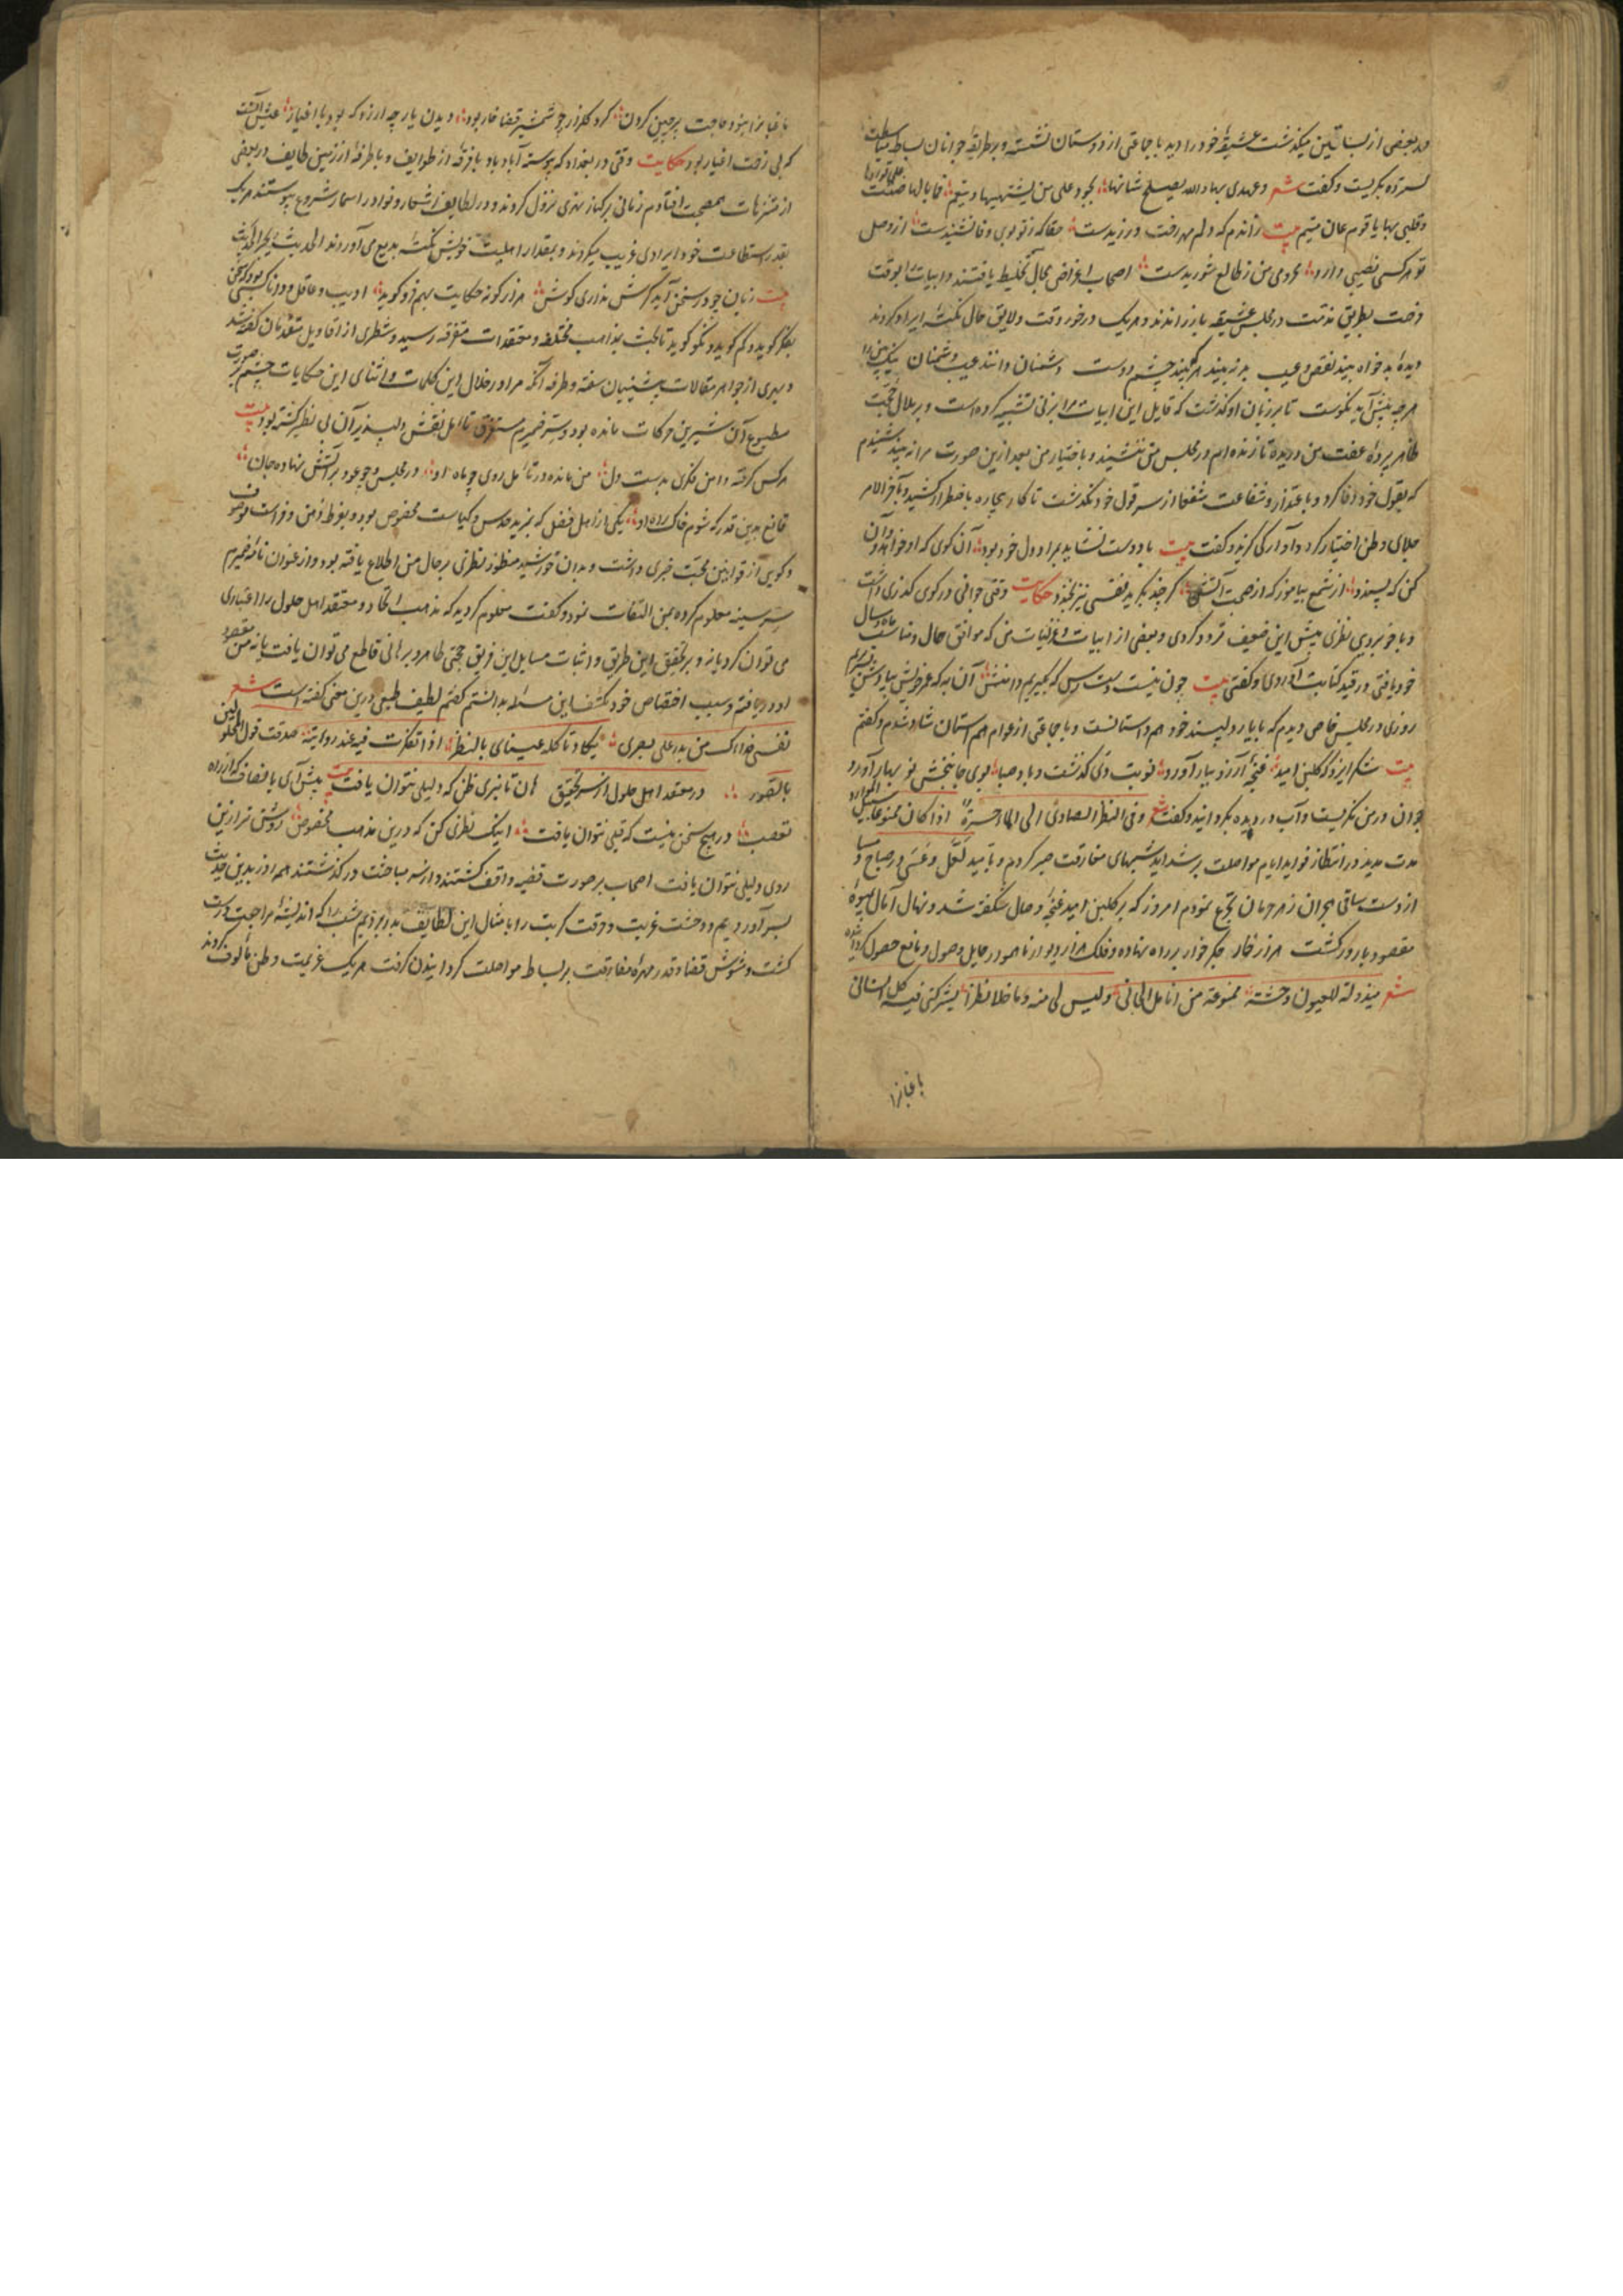 در بعضی از بساتین میگذشت عشیقهٔ خود را دید با جماعتی از دوستان نشسته و بر طریقهٔ جوانان بساط
بگریست و گفت شعر وعهدی بها والله یصلح شانها
وقلبی بها یا قوم عان متیم بیت زاندم که دلم مهر رخت ورزیدست حقا که ز تو بوی وفا نشنیدست از وصل
تو هر کسی نصیبی دارد محرومی من ز طالع شوریدست اصحاب اغراض مجال تخلیط یافتند و ابیات را بوقت
فرصت بطریق مذمت در مجلس عشیقه باز راندند و هر یک در خور وقت و لایق حال نکتهٔ ایراد کردند
دیدهٔ بدخواه بیند نقص و عیب بد نه بیند هر که بیند چشم دوست دشمنان دانند عیب دشمنان نیک بین را
هر چه پیش آید نکوست تا بر زبان او گذشت که قایل این ابیات مرا بزنی تشبیه کرده است و بر بلال
ظاهر پردهٔ عفت من دریده تا زنده ام در مجلس من ننشیند و باختیار من بعد ازین صورت مرا نه بیند شنیدم
که بقول خود وفا کرد و باعتذار و شفاعت شفعا از سر قول خود نگذشت تا کار بیچاره باضطرار کشید و بآخر الامر
جلای وطن اختیار کرد و آوارگی گزید و گفت بیت با دوست نشاید بمراد دل خود بود آن کوی که او خواهد و آن
کن که پسندد از شمع بیاموز که از صحبت آتش گر چند بگرید نفسی نیز بخندد حکایت وقتی جوانی در کوی گذری داشت
و با خوبرویی نظری پیش این ضعیف تردد کردی و بعضی از ابیات و غزلیات من که موافق حال و مناسب ماه و سال
خود یافتی در قید کتابت آوردی و گفتی بیت چون نیست دسترس که بگیریم دامنش آن به که عرض خویش بیادش بسر بریم
روزی در مجلس خاص دیدم که با یار دلپسند خود هم داستانست و با جماعتی از عوام هم استمان شاد شدم و گفتم
بیت شکر ایزد که گلبن امید غنچهٔ آرزو ببار آورد نوبت دی گذشت و باد صبا بوی جانبخش نو بهار آورد
جوان در من نگریست و آب در دیده بگردانید و گفت شعر وفی النظر الصادی الی الماء حسرة اذا کان ممنوعا سبیل الموارد
مدت مدید در انتظار فواید ایام مواصلت بر شداید شبهای مفارقت صبر کردم و بامید لعل و عسی در صباح و مسا
از دست ساقی هجران زهر حرمان تجرع نمودم امروز که بر گلبن امید غنچهٔ وصال شکفته شد و نهال آمال بمیوهٔ
مقصود بارور گشت هزار خار جگر خوار بر راه نهاده و فلک هزار دیوار ناهموار حایل وصول و مانع حصول گردانیده
شعر مبذولة للعیون وجنته ممنوعة من انامل الجانی ولیس لی منه ما خلا نظرا یشرکنی فیه کل انسان
باغبانرا
باغبانرا هنر و حاجت پرچین کردن گرد گلزار چو شمشیر قضا خار بود دیدن یار چه ارزد که بود با اغیار عیش آنست
که بی زحمت اغیار بود حکایت وقتی در بغداد که پیوسته آباد باد با فرقهٔ از طوایف و با طرفهٔ از زمین طایف در بعضی
از متنزهات هم صحبت افتادم زمانی بر کنار نهری نزول کردند و در لطایف اشعار و نوادر اسمار شروع پیوستند هر یک
بقدر استطاعت خود ایرادی غریب میکردند و بمقدار اهلیت خویش نکتهٔ بدیع می آوردند الحدیث یجر الحدیث
بیت زبان چو در سخن آید گرش نداری گوش هزار گونه حکایت بهم فرو گوید ادیب و عاقل و دانا کسی بود که سخن
بفکر گوید و کم گوید و نکو گوید تا بحث بمذاهب مختلفه و معتقدات متفرقه رسید و شطری از اقاویل متقدمان گفته شد
و بهری از جواهر مقالات پیشینیان سفته و طرفه آنکه مرا در خلال این کلمات و اثنای این حکایات چشم بر صورت
مطبوع آن شیرین حرکات مانده بود و سر ضمیرم مستغرق تامل نقش دلپذیر آن بی نظیر گشته بود بیت
هر کس گرفته دامن فکری بدست دل من مانده در تأمل روی چو ماه او در مجلس وجود بر آتش نهاده جان
قانع بدین قدر که شوم خاک راه او یکی از اهل فضل که بمزید حدس و کیاست مخصوص بود و بفرط ذهن و فراست موصوف
و گویی از قوانین محبت خبری داشت و بدان خورشید منظور نظری بر حال من اطلاع یافته بود و از عنوان نامهٔ ضمیرم
سر سینه معلوم کرده بمن التفات نمود و گفت معلوم گردید که مذهب اتحاد و معتقد اهل حلول را اعتباری
می توان کرد یا نه و بر تحقیق این طریق و اثبات مسایل این فریق حجتی ظاهر و برهانی قاطع می توان یافت یا نه من مقصود
او دریافتم و سبب اختصاص خود بکشف این مسئله بدانستم گفتم لطیف طبعی درین معنی گفته است شعر
نفسی فداک من بدر علی بصری یکاد تاکله عینای بالنظر اذا تفکرت فیه عند رؤیته صدقت قول الحلولیین
بالصور در معتقد اهل حلول از سر تحقیق هان تا نبری ظن که دلیلی نتوان یافت بیت پیش آی بانصاف که از راه
تعصب در هیچ سخن نیست که قیلی نتوان یافت اینک نظری کن که درین مذهب مخصوص روشن تر ازین
روی دلیلی نتوان یافت اصحاب بر صورت قضیه واقف گشتند و از سر مباحثت در گذشتند همه روز بدین حدیث
بسر آوردیم و وحشت غربت و حرقت کربت را بامثال این لطایف بدر بردیم شب را که اندیشهٔ مراجعت درست
گشت و مشوش قضا و قدر مهرهٔ مفارقت بر بساط مواصلت گردانیدن گرفت هر یک عزیمت وطن مألوف کردند